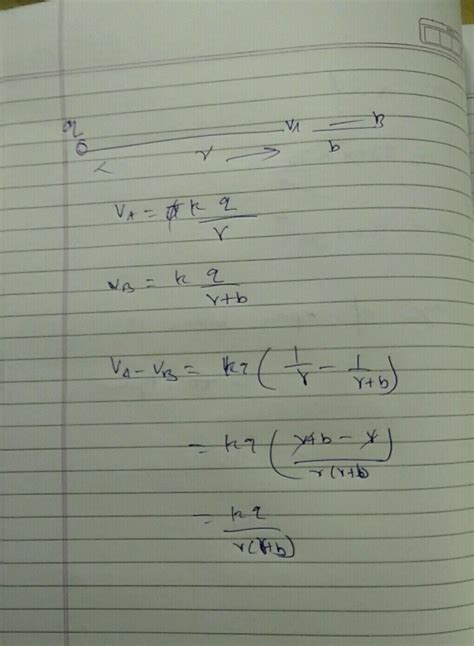 q
r
A b B
V_A = k q/r
V_B = k q/(r+b)
V_A - V_B = kq (1/r - 1/(r+b))
= kq ((r+b - r)/(r(r+b)))
= kq/(r(r+b))